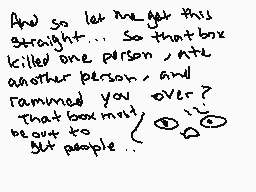 And so let me get this
straight... so that box
killed one person, ate
another person, and
rammed you over?
That box must
be out to
get people..